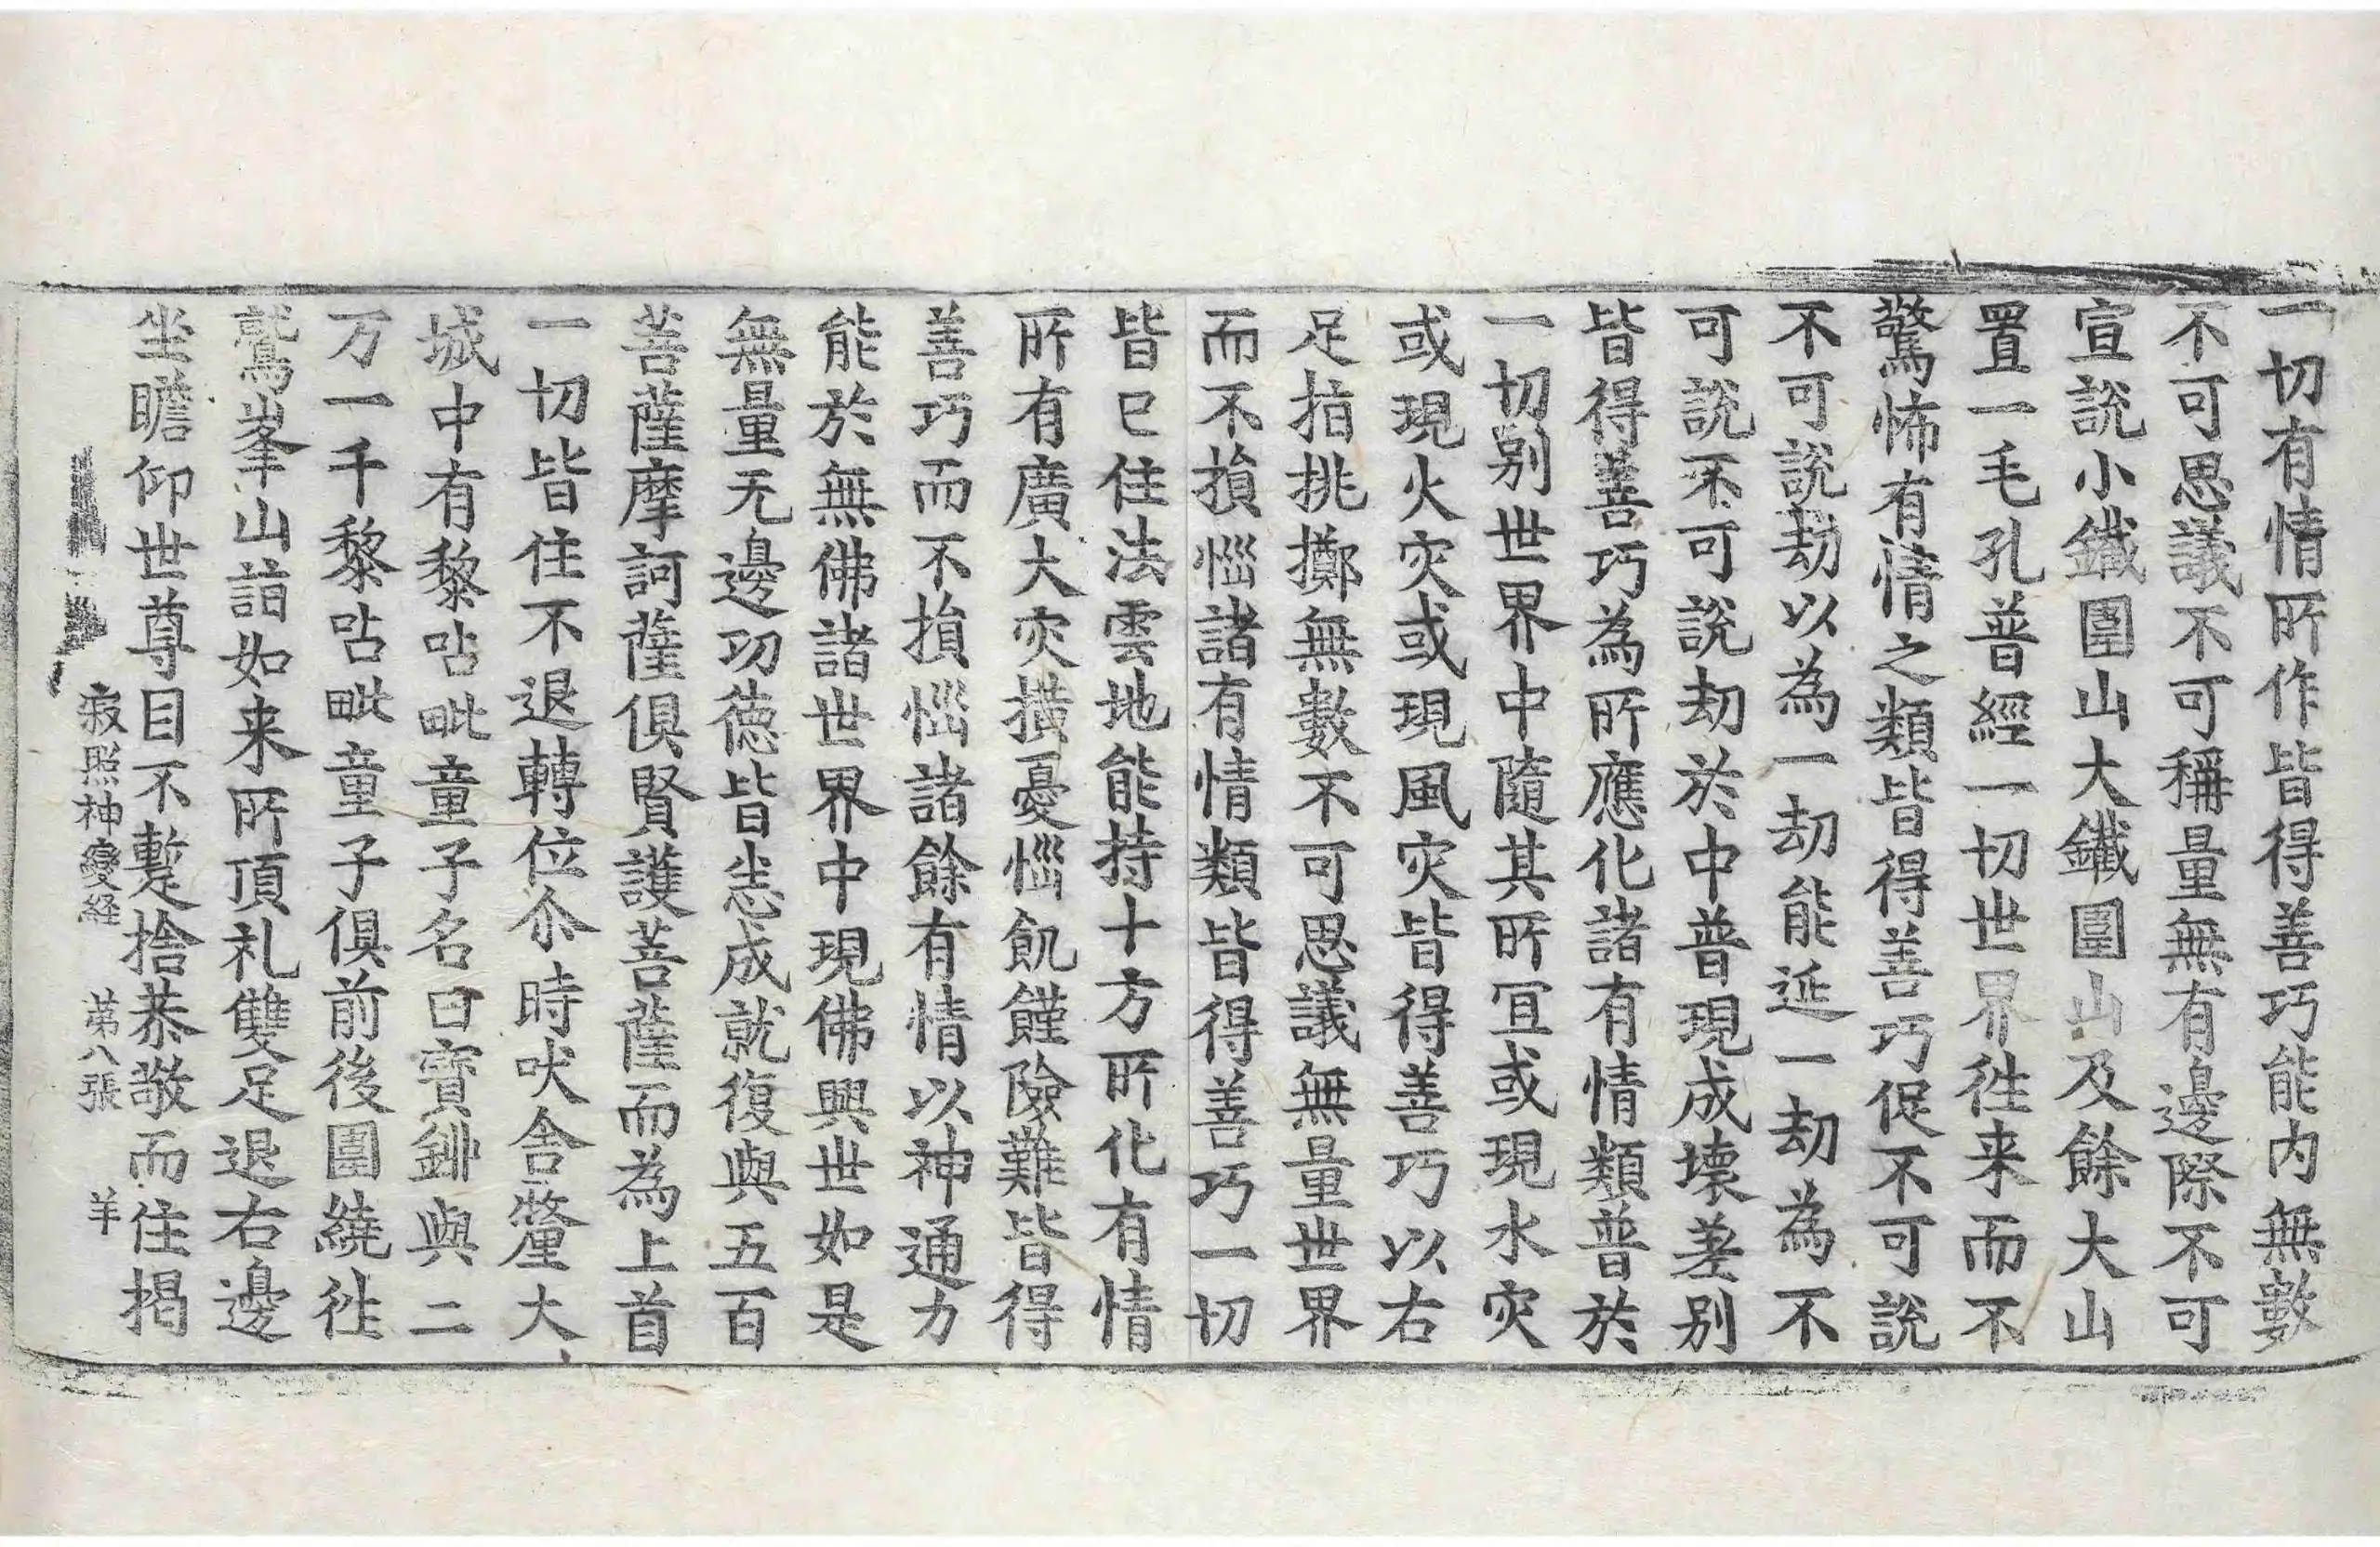 一切有情所作皆得善巧能内無數
不可思議不可稱量無有邊際不可
宣說小鐵圍山大鐵圍山及餘大山
置一毛孔普經一切世界徃来而不
驚怖有情之類皆得善巧促不可說
不可說劫以為一劫能延一劫為不
可說不可說劫於中普現成壞差别
皆得善巧為所應化諸有情類普於
一切别世界中隨其所冝或現水灾
或現火灾或現風灾皆得善巧以右
足指挑擲無數不可思議無量世界
而不損惱諸有情類皆得善巧一切
皆已住法雲地能持十方所化有情
所有廣大灾横憂惱飢饉險難皆得
善巧而不損惱諸餘有情以神通力
能於無佛諸世界中現佛興世如是
無量无邊功德皆悉成就復與五百
菩薩摩訶薩俱賢護菩薩而為上首
一切皆住不退轉位尒時吠舍釐大
城中有黎呫毗童子名曰寶鉚與二
万一千黎呫毗童子俱前後圍繞徃
鷲峯山詣如来所頂礼雙足退右邊
坐瞻仰世尊目不蹔捨恭敬而住揭
寂照神變経 苐八張 羊